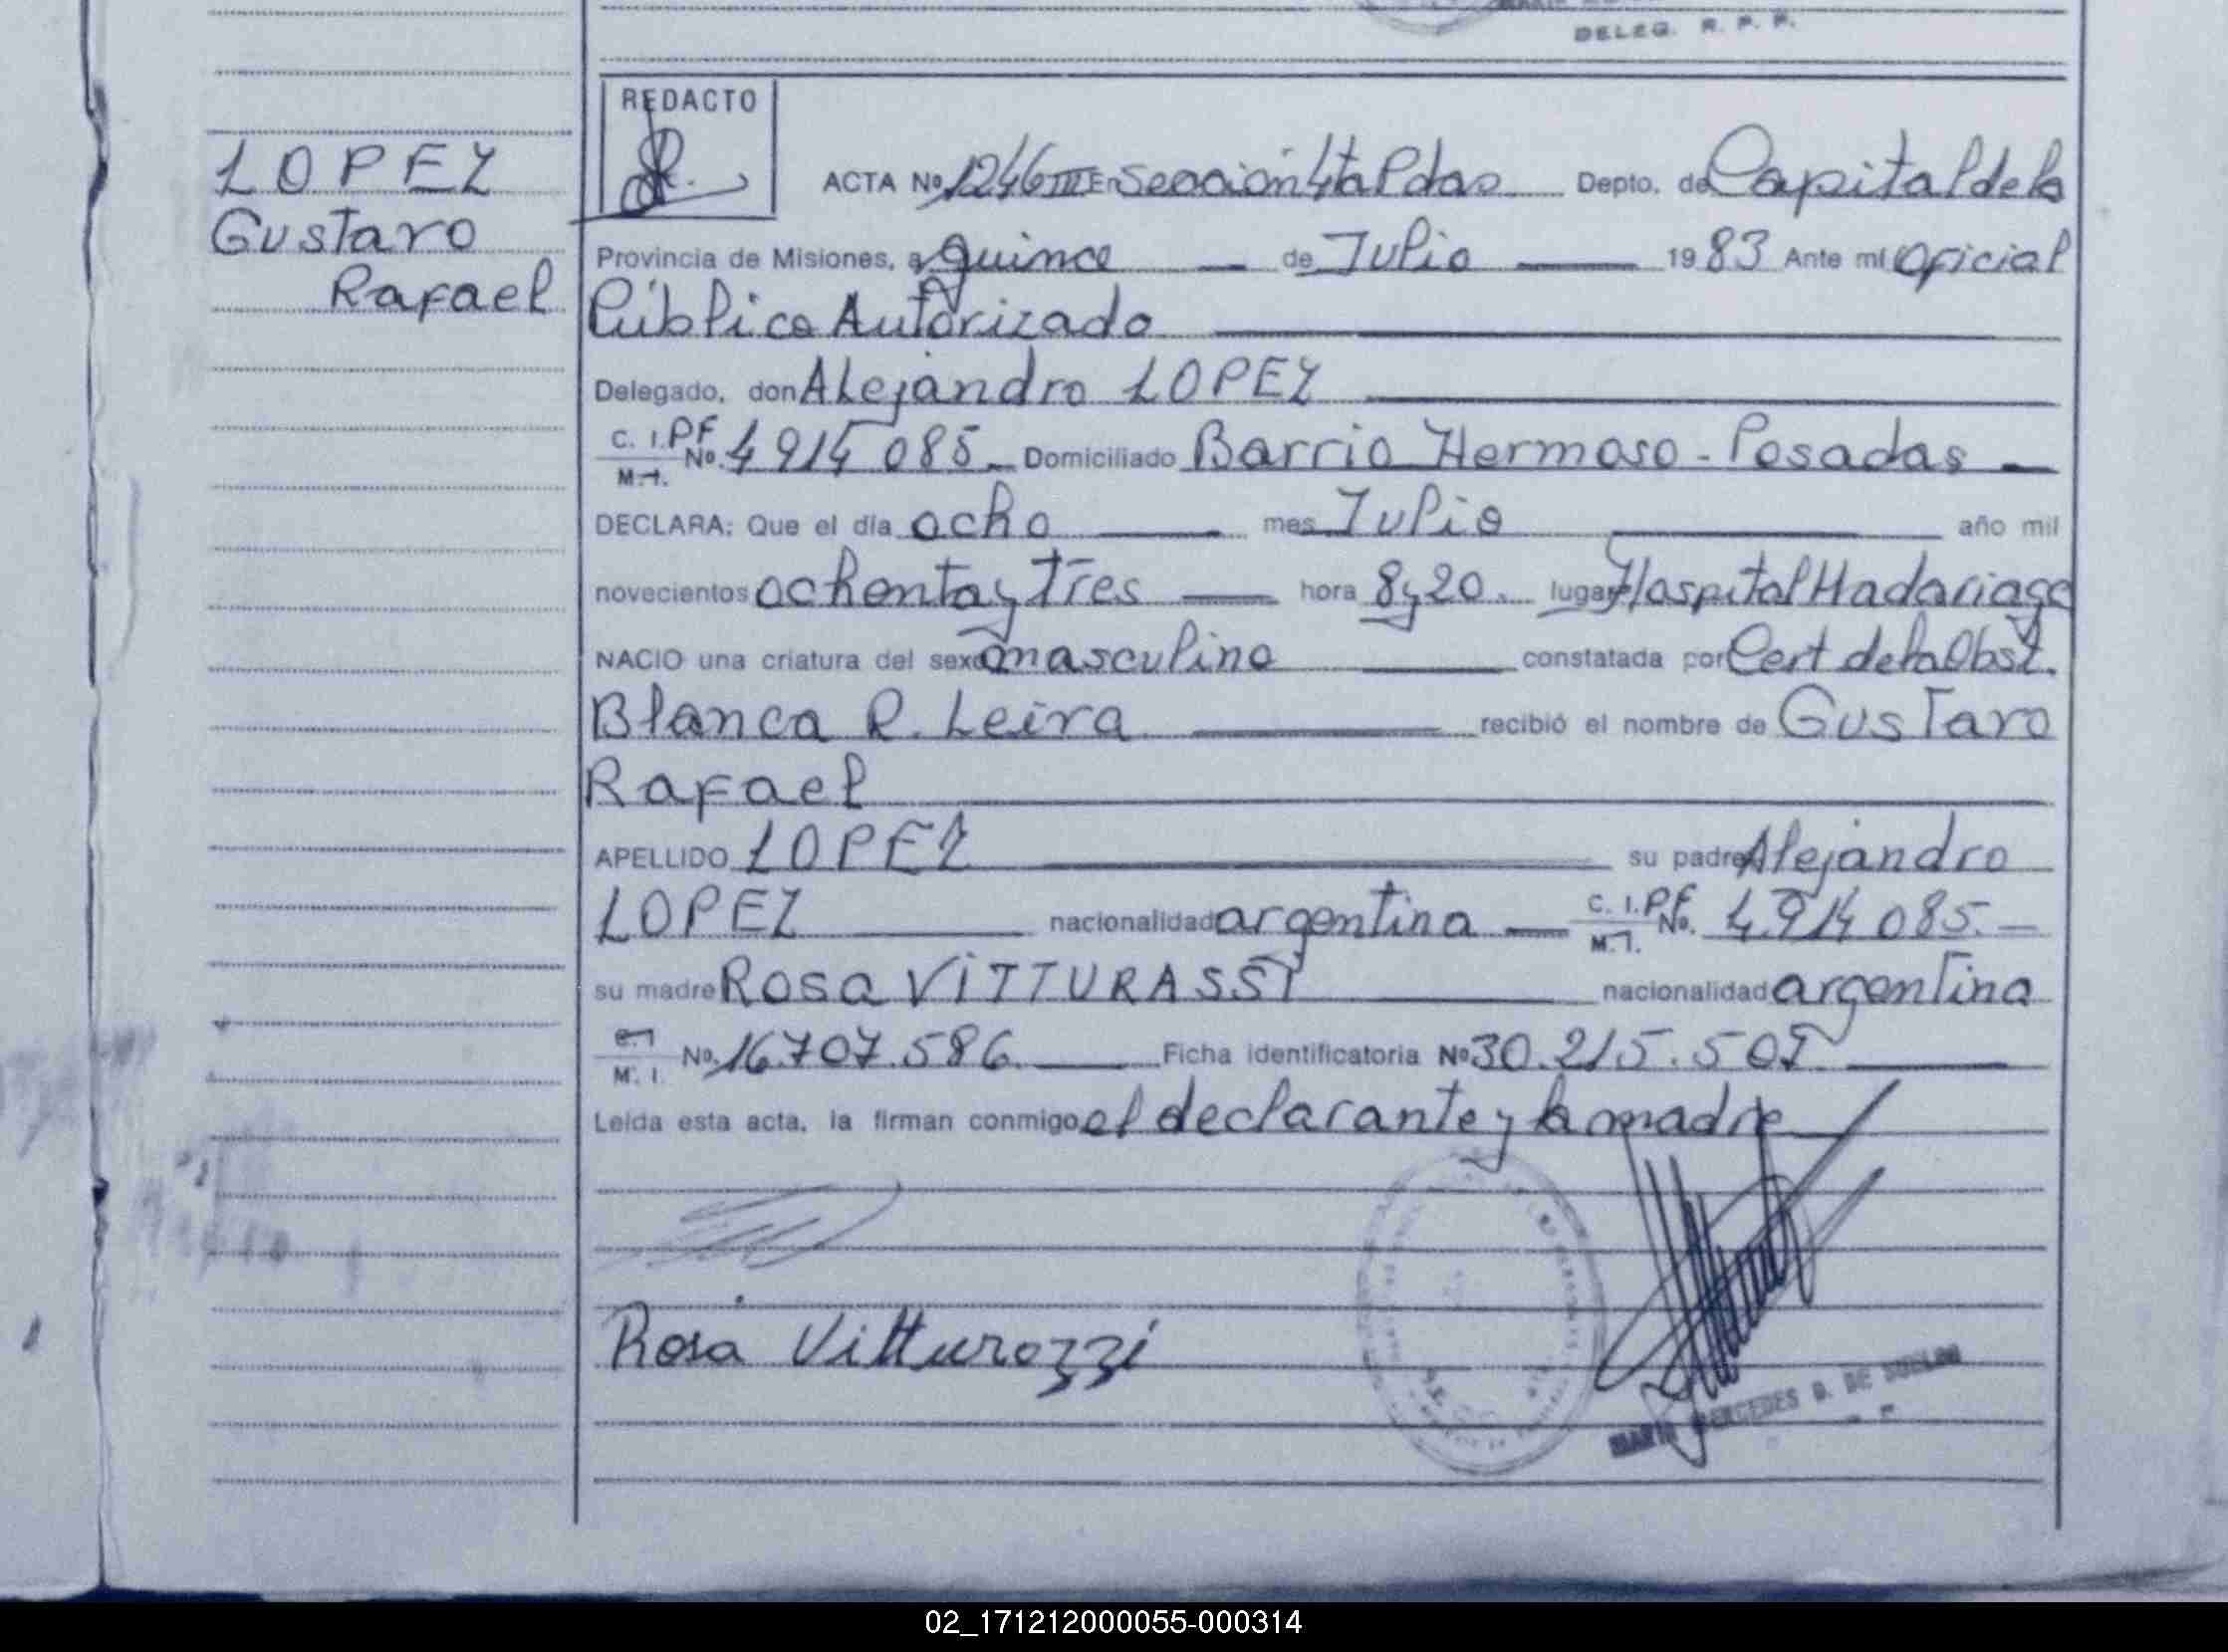 DELEG. R. P. P.
REDACTO
LOPEZ
Gustavo
Rafael
ACTA No. 1246 III En Sección 4ta Pdas Depto. de Capital de la
Provincia de Misiones, a quince de Julio 1983 Ante mí Oficial
Público Autorizado
Delegado, don Alejandro LOPEZ
C. I. PF No. 4914085 Domiciliado Barrio Hermoso - Posadas
M. I.
DECLARA: Que el día ocho mes Julio año mil
novecientos ochenta y Tres hora 8 y 20. lugar Hospital Madariaga
NACIO una criatura del sexo masculino constatada por Cert de la Obst.
Blanca R. Leira recibió el nombre de Gustavo
Rafael
APELLIDO LOPEZ su padre Alejandro
LOPEZ nacionalidad argentina C. I. PF No. 4.914085.
M. I.
su madre Rosa VITTURASSI nacionalidad argentina
C. I. No. 16.707.586 Ficha identificatoria No 30.215.507
M. I.
Leída esta acta, la firman conmigo, el declarante y la madre
Rosa Vitturozzi
MARIA MERCEDES D. DE
02_171212000055-000314